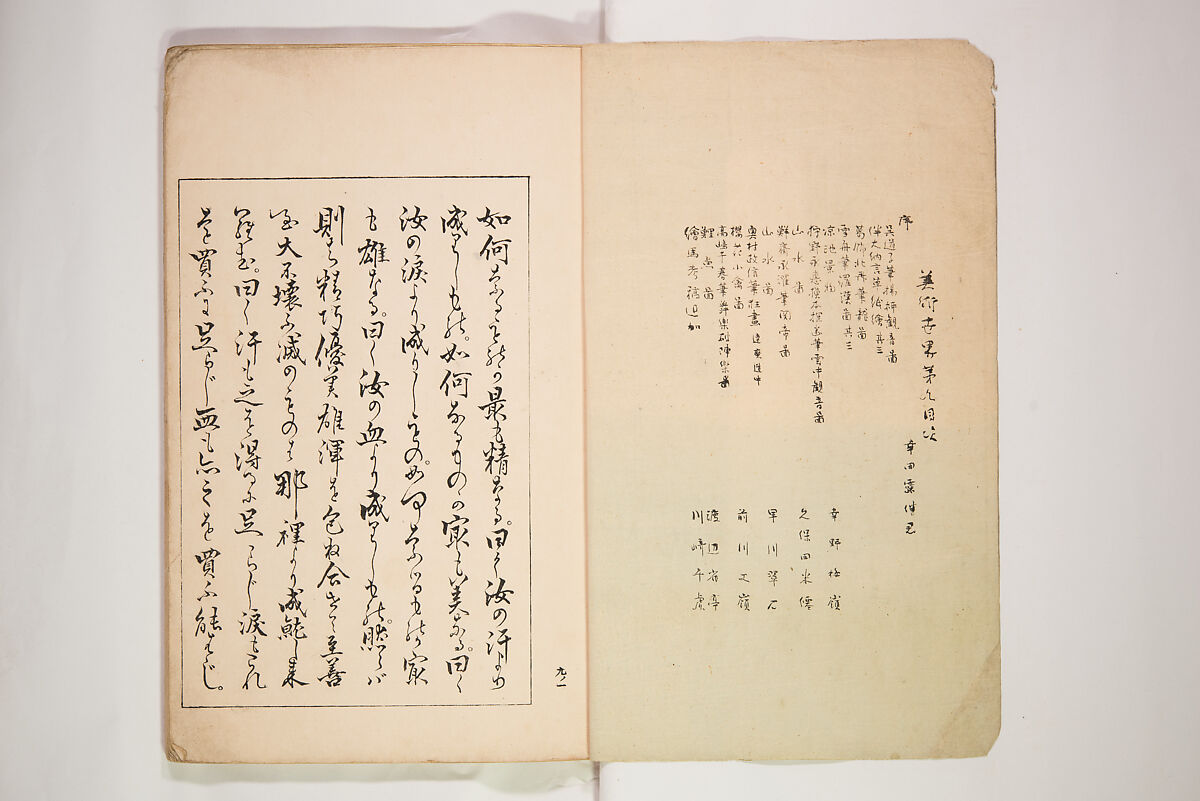 美術世界第九目次
序
幸田露伴君
呉道子筆揚柳観音圖
伴大納言草紙繪其三
葛飾北斎筆龍圖
雪舟筆羅漢圖其三
涼池景物
幸野楳嶺
狩野永悳模本探幽筆雲中観音圖
山水圖
久保田米僊
鮮斎永濯筆関帝圖
山水圖
早川翠石
奥村政信筆狂畫
櫻花小禽圖
前川文嶺
高嶋千春筆舞楽
鯉魚圖
渡辺省亭
繪馬考説追加
川﨑千虎
如何なるものか最も精なる。曰く汝の汗より
成りしもの。如何なるものか最も美なる。曰く
汝の涙より成りしもの。如何なるものか最
も雄なる。曰く汝の血より成りしもの。然らば
則ち精巧優美雄渾を包ね合せて至善
至大不壊不滅のものは那裡より成就し来
るぞ。曰く汗も之を得るに足らじ涙もこれ
を買ふに足らじ血も亦之を買ふ能はじ。
九ノ一